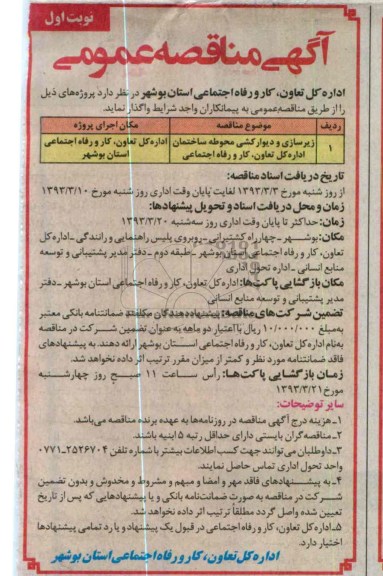 نوبت اول
آگهی مناقصه عمومی
اداره کل تعاون، کار و رفاه اجتماعی استان بوشهر در نظر دارد پروژه‌های ذیل
را از طریق مناقصه‌عمومی به پیمانکاران واجد شرایط واگذار نماید.
ردیف موضوع مناقصه مکان اجرای پروژه
۱ زیرسازی و دیوارکشی محوطه ساختمان اداره‌کل تعاون، کار و رفاه اجتماعی
اداره‌کل تعاون، کار و رفاه اجتماعی استان بوشهر
تاریخ دریافت اسناد مناقصه:
از روز شنبه مورخ ۱۳۹۳/۳/۳ لغایت پایان وقت اداری روز شنبه مورخ ۱۳۹۳/۳/۱۰
زمان و محل دریافت اسناد و تحویل پیشنهادها:
زمان: حداکثر تا پایان وقت اداری روز سه‌شنبه ۱۳۹۳/۳/۲۰
مکان: بوشهر-چهارراه کشتیرانی-روبروی پلیس راهنمایی و رانندگی-اداره‌کل
تعاون، کار و رفاه اجتماعی استان بوشهر -طبقه دوم -دفتر مدیر پشتیبانی و توسعه
منابع انسانی -اداره تحول اداری
مکان بازگشایی پاکت‌ها: اداره‌کل تعاون، کار و رفاه اجتماعی استان بوشهر -دفتر
مدیر پشتیبانی و توسعه منابع انسانی
تضمین شرکت‌های مناقصه: پیشنهاددهندگان مکلفند ضمانتنامه بانکی معتبر
به‌مبلغ ۱۰/۰۰۰/۰۰۰ ریال با اعتبار دو ماهه به‌عنوان تضمین شرکت در مناقصه
به‌نام اداره‌کل تعاون، کار و رفاه اجتماعی استان بوشهر ارائه دهند. به پیشنهادهای
فاقد ضمانتنامه مورد نظر و کمتر از میزان مقرر ترتیب اثر داده نخواهد شد.
زمان بازگشایی پاکت‌ها: رأس ساعت ۱۱ صبح روز چهارشنبه
مورخ ۱۳۹۳/۳/۲۱
سایر توضیحات:
۱-هزینه درج آگهی مناقصه در روزنامه‌ها به عهده برنده مناقصه می‌باشد.
۲-مناقصه‌گران بایستی دارای حداقل رتبه ۵ ابنیه باشند.
۳-داوطلبان می‌توانند جهت کسب اطلاعات بیشتر با شماره تلفن ۲۵۲۶۷۰۴-۰۷۷۱
واحد تحول اداری تماس حاصل نمایند.
۴-به پیشنهادهای فاقد مهر و امضا و مبهم و مشروط و مخدوش و بدون تضمین
شرکت در مناقصه به صورت ضمانت‌نامه بانکی و یا پیشنهادهایی که پس از تاریخ
تعیین شده واصل گردد مطلقاً ترتیب اثر داده نخواهد شد.
۵-اداره کل تعاون، کار و رفاه اجتماعی در قبول یک پیشنهاد و یا رد تمامی پیشنهادها
اختیار دارد.
اداره کل تعاون، کار و رفاه اجتماعی استان بوشهر